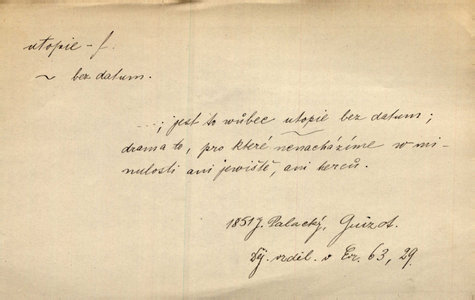 utopie - f.
~ bez datum.
...; jest to wůbec utopie bez datum;
drama to, pro které nenacházíme w mi-
nulosti ani jewiště, ani herců.
1851 J. Palacký, Guizot.
Dý. vzděl. v Er. 63, 29.